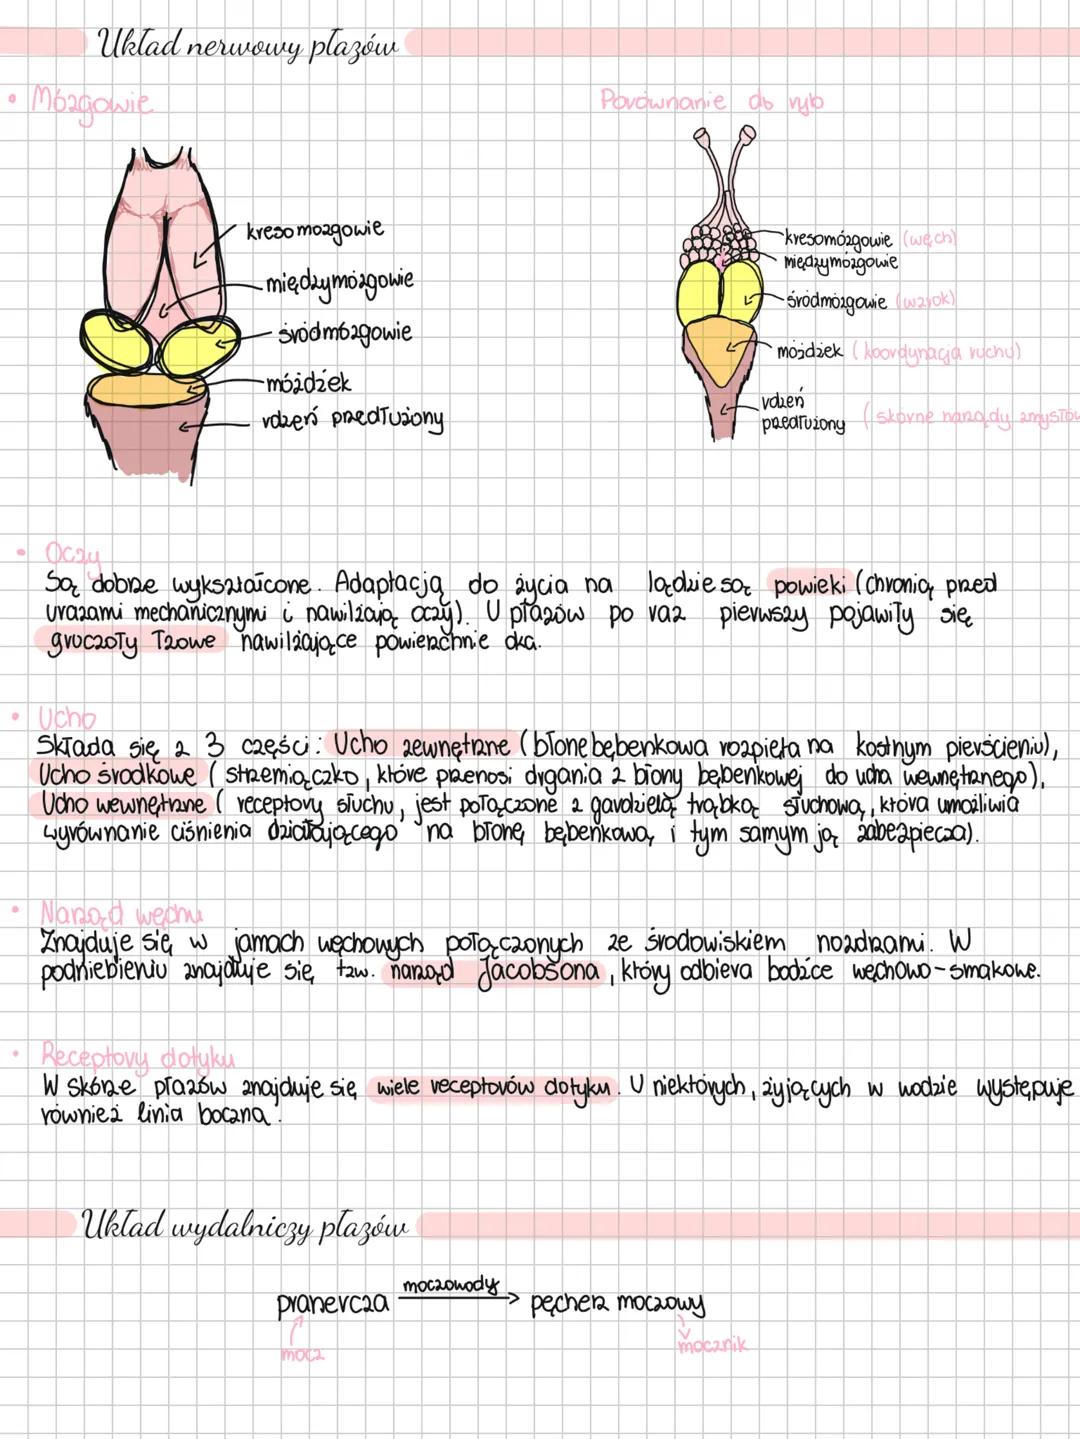 Układ nerwowy płazów
• Mózgowie
Porównanie do ryb
kresomózgowie
międzymózgowie
śródmózgowie
móżdżek
rdzeń przedłużony
kresomózgowie (węch)
międzymózgowie
śródmózgowie (wzrok)
móżdżek (koordynacja ruchu)
rdzeń
przedłużony (skórne narządy zmysłów
• Oczy
Są dobrze wykształcone. Adaptacją do życia na lądzie są powieki (chronią przed
urazami mechanicznymi i nawilżają oczy). U płazów po raz pierwszy pojawiły się
gruczoły łzowe nawilżające powierzchnie oka.
• Ucho
Składa się z 3 części: Ucho zewnętrzne (błonę bębenkowa rozpięta na kostnym pierścieniu),
Ucho środkowe (strzemiączko, które przenosi drgania z błony bębenkowej do ucha wewnętrznego),
Ucho wewnętrzne (receptory słuchu, jest połączone z gardzielą trąbką słuchową, która umożliwia
wyrównanie ciśnienia działającego na błonę bębenkową i tym samym ją zabezpiecza).
• Narząd węchu
Znajduje się w jamach węchowych połączonych ze środowiskiem nozdrzami. W
podniebieniu znajduje się tzw. narząd Jacobsona, który odbiera bodźce węchowo-smakowe.
• Receptory dotyku
W skórze płazów znajduje się wiele receptorów dotyku. U niektórych, żyjących w wodzie występuje
również linia boczna.
Układ wydalniczy płazów
pranercza moczowody pęcherz moczowy
mocz
mocznik